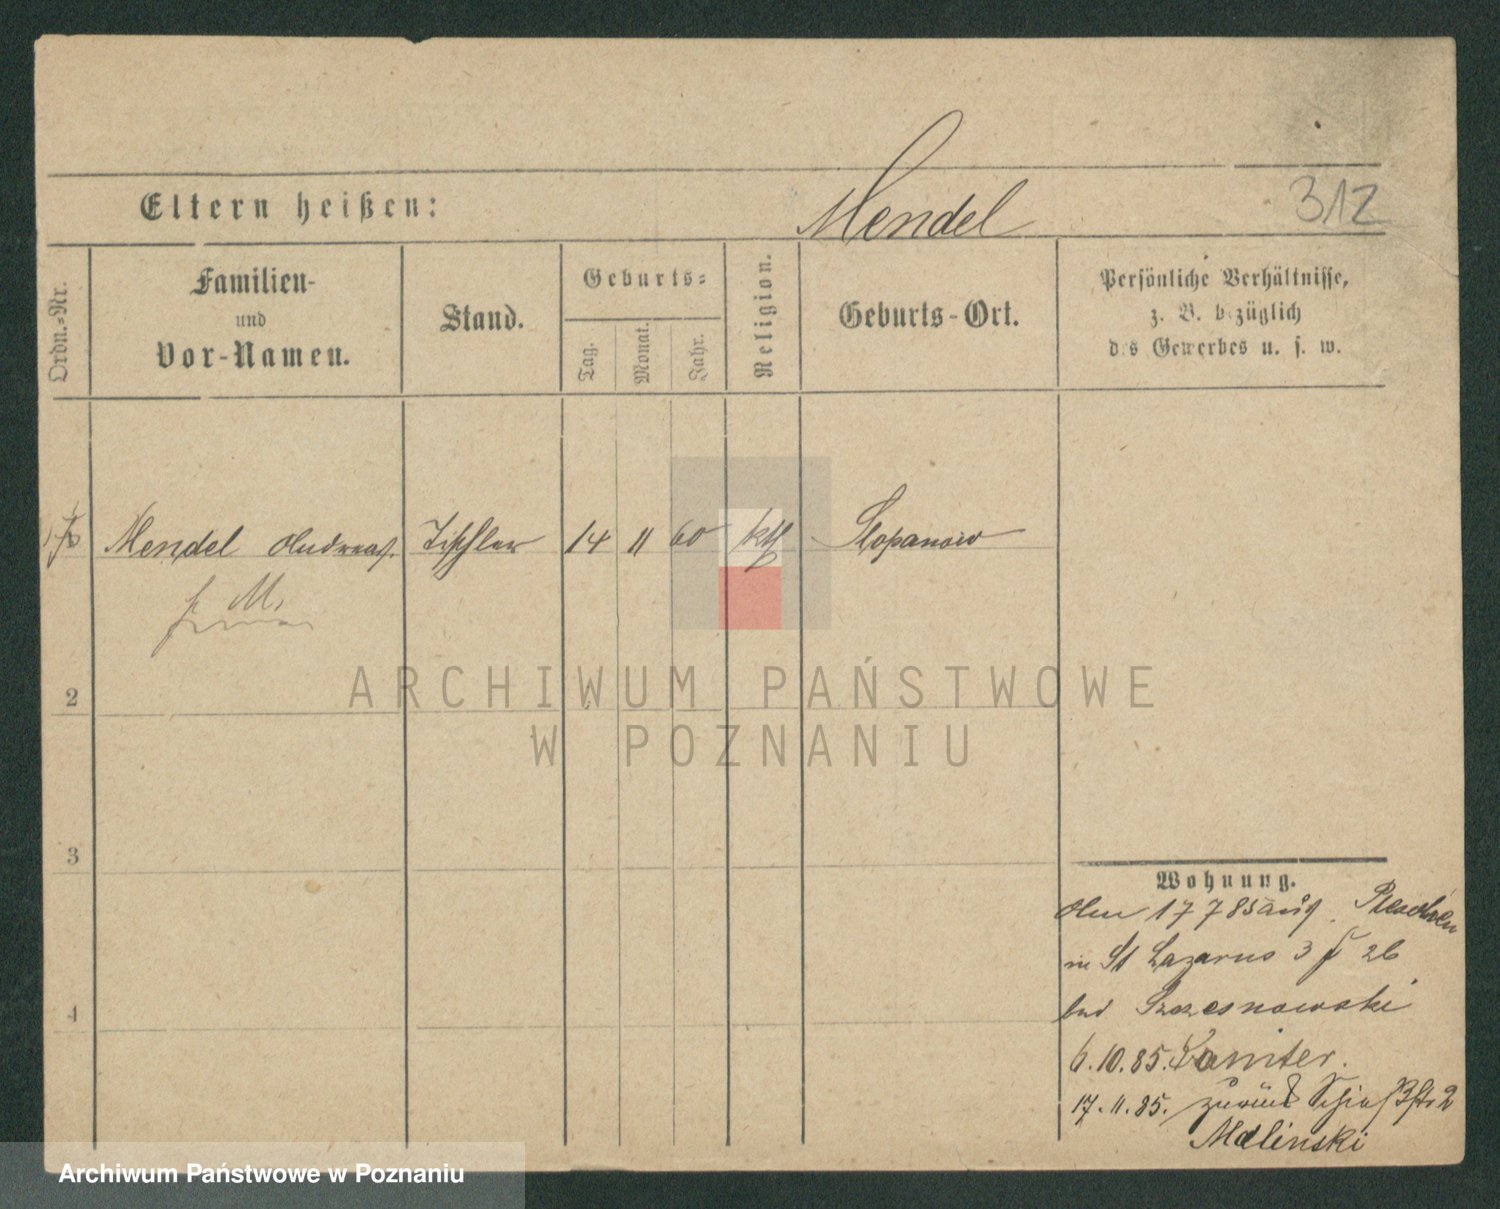 Eltern heißen:
Mendel
312
Ordn.-Nr.
Familien-
und
Vor-Namen.
Stand.
Geburts-
Tag.
Monat.
Jahr.
Religion.
Geburts-Ort.
Persönliche Verhältnisse,
z. B. bezüglich
des Gewerbes u. s. w.
Mendel Andreas Tischler 14 11 60 kth
2
3
4
Wohnung.
Am 17 7 85 aus Pleschen
in St Lazarus 3 26
bei Szczesnowski
6.10.85. Samter.
17.11.85. zurück Schießstr 2
Malinski
ARCHIWUM PAŃSTWOWE
W POZNANIU
Archiwum Państwowe w Poznaniu